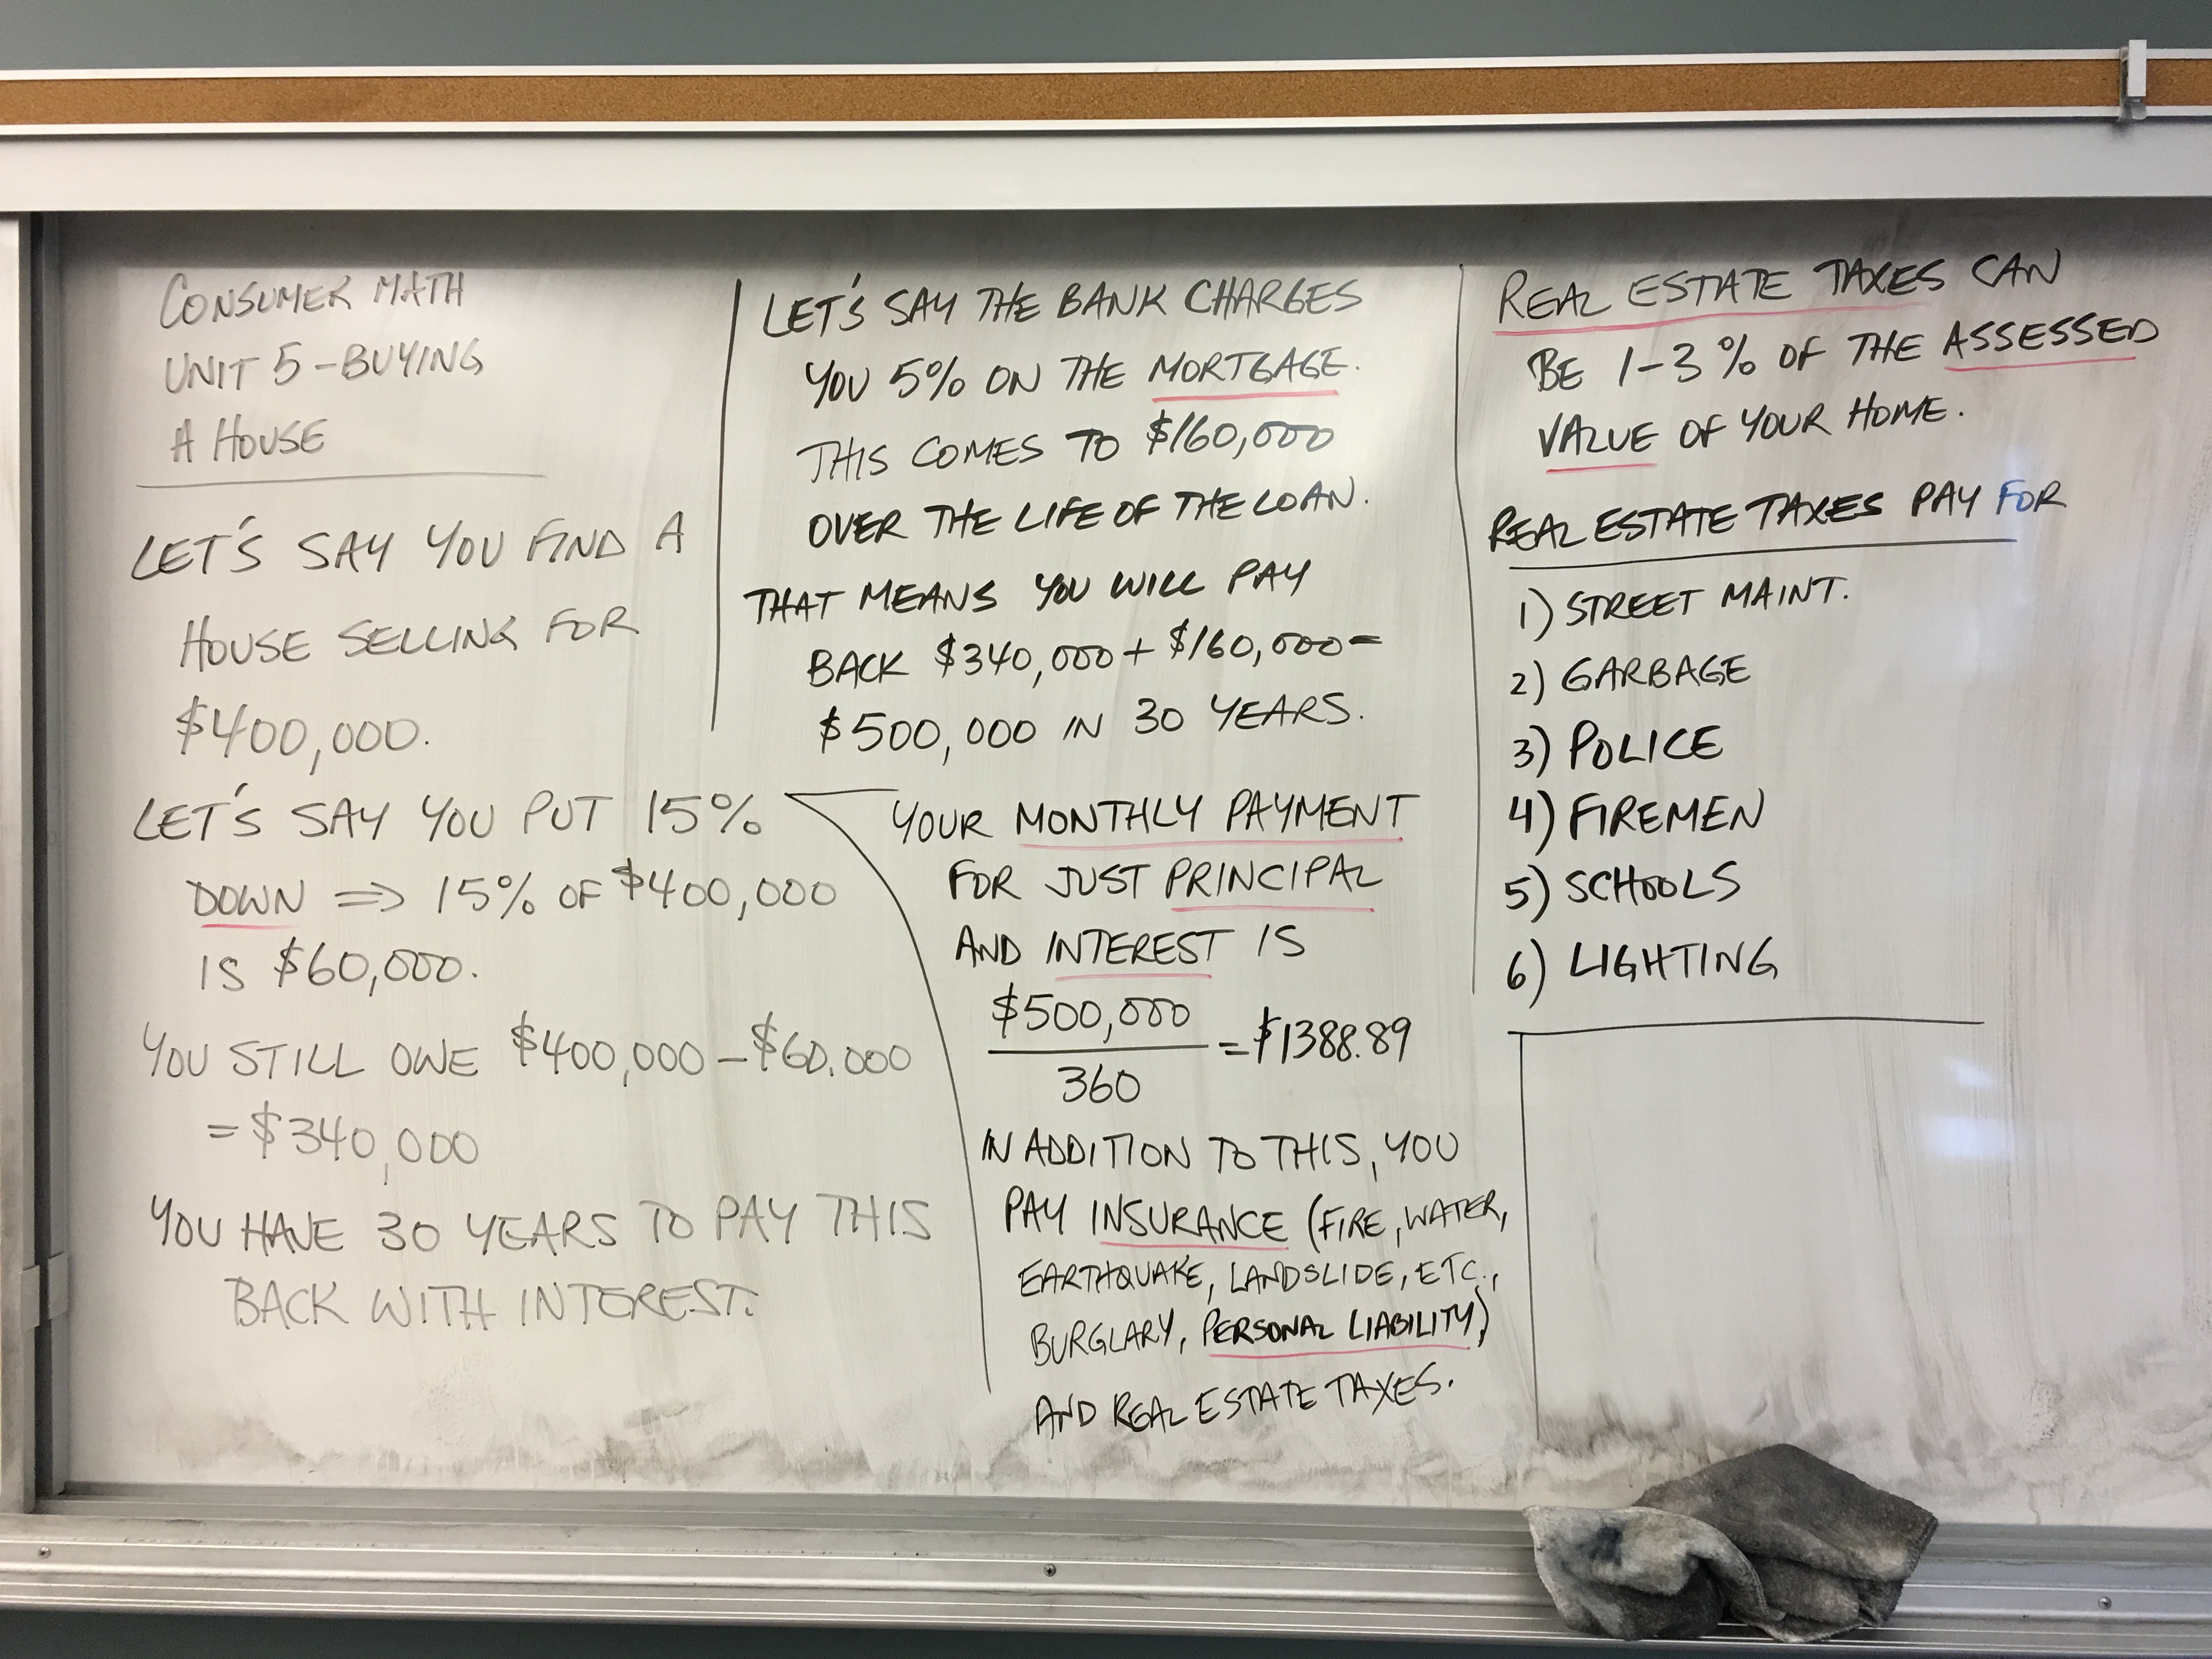 CONSUMER MATH
UNIT 5 - BUYING
A HOUSE
LET'S SAY YOU FIND A
HOUSE SELLING FOR
$400,000.
LET'S SAY YOU PUT 15%
DOWN ⇒ 15% OF $400,000
IS $60,000.
YOU STILL OWE $400,000 - $60.000
= $340,000
YOU HAVE 30 YEARS TO PAY THIS
BACK WITH INTEREST.
LET'S SAY THE BANK CHARGES
YOU 5% ON THE MORTGAGE.
THIS COMES TO $160,000
OVER THE LIFE OF THE LOAN.
THAT MEANS YOU WILL PAY
BACK $340,000 + $160,000 =
$500,000 IN 30 YEARS.
YOUR MONTHLY PAYMENT
FOR JUST PRINCIPAL
AND INTEREST IS
$500,000
360
= $1388.89
IN ADDITION TO THIS, YOU
PAY INSURANCE (FIRE, WATER,
EARTHQUAKE, LANDSLIDE, ETC.,
BURGLARY, PERSONAL LIABILITY)
AND REAL ESTATE TAXES.
REAL ESTATE TAXES CAN
BE 1-3% OF THE ASSESSED
VALUE OF YOUR HOME.
REAL ESTATE TAXES PAY FOR
1) STREET MAINT.
2) GARBAGE
3) POLICE
4) FIREMEN
5) SCHOOLS
6) LIGHTING